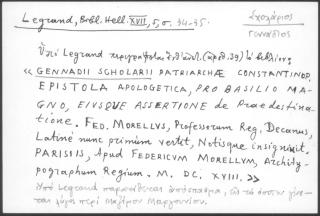 Legrand, Bibl. Hell. XVII, 5, σ. 34-35.
Σχολάριος
Γεννάδιος
Ὑπὸ Legrand περιγράφεται (ἀριθ. 39)
« GENNADII SCHOLARII PATRIARCHÆ CONSTANTINOP.
EPISTOLA APOLOGETICA, PRO BASILIO MA-
GNO, EIVSQVE ASSERTIONE de Praedestina-
tione. FED. MORELLVS, Professorum Reg. Decanus,
Latinè nunc primùm vertit, Notisque insignivit.
PARISIIS, Apud FEDERICVM MORELLVM, Archity-
pographum Regium. M. DC. XVIII. »
Ὑπὸ Legrand παρατίθεται ἀπόσπασμα, ἐν τῷ ὁποίῳ γίνε-
ται λόγος περὶ Μαξίμου Μαργουνίου.